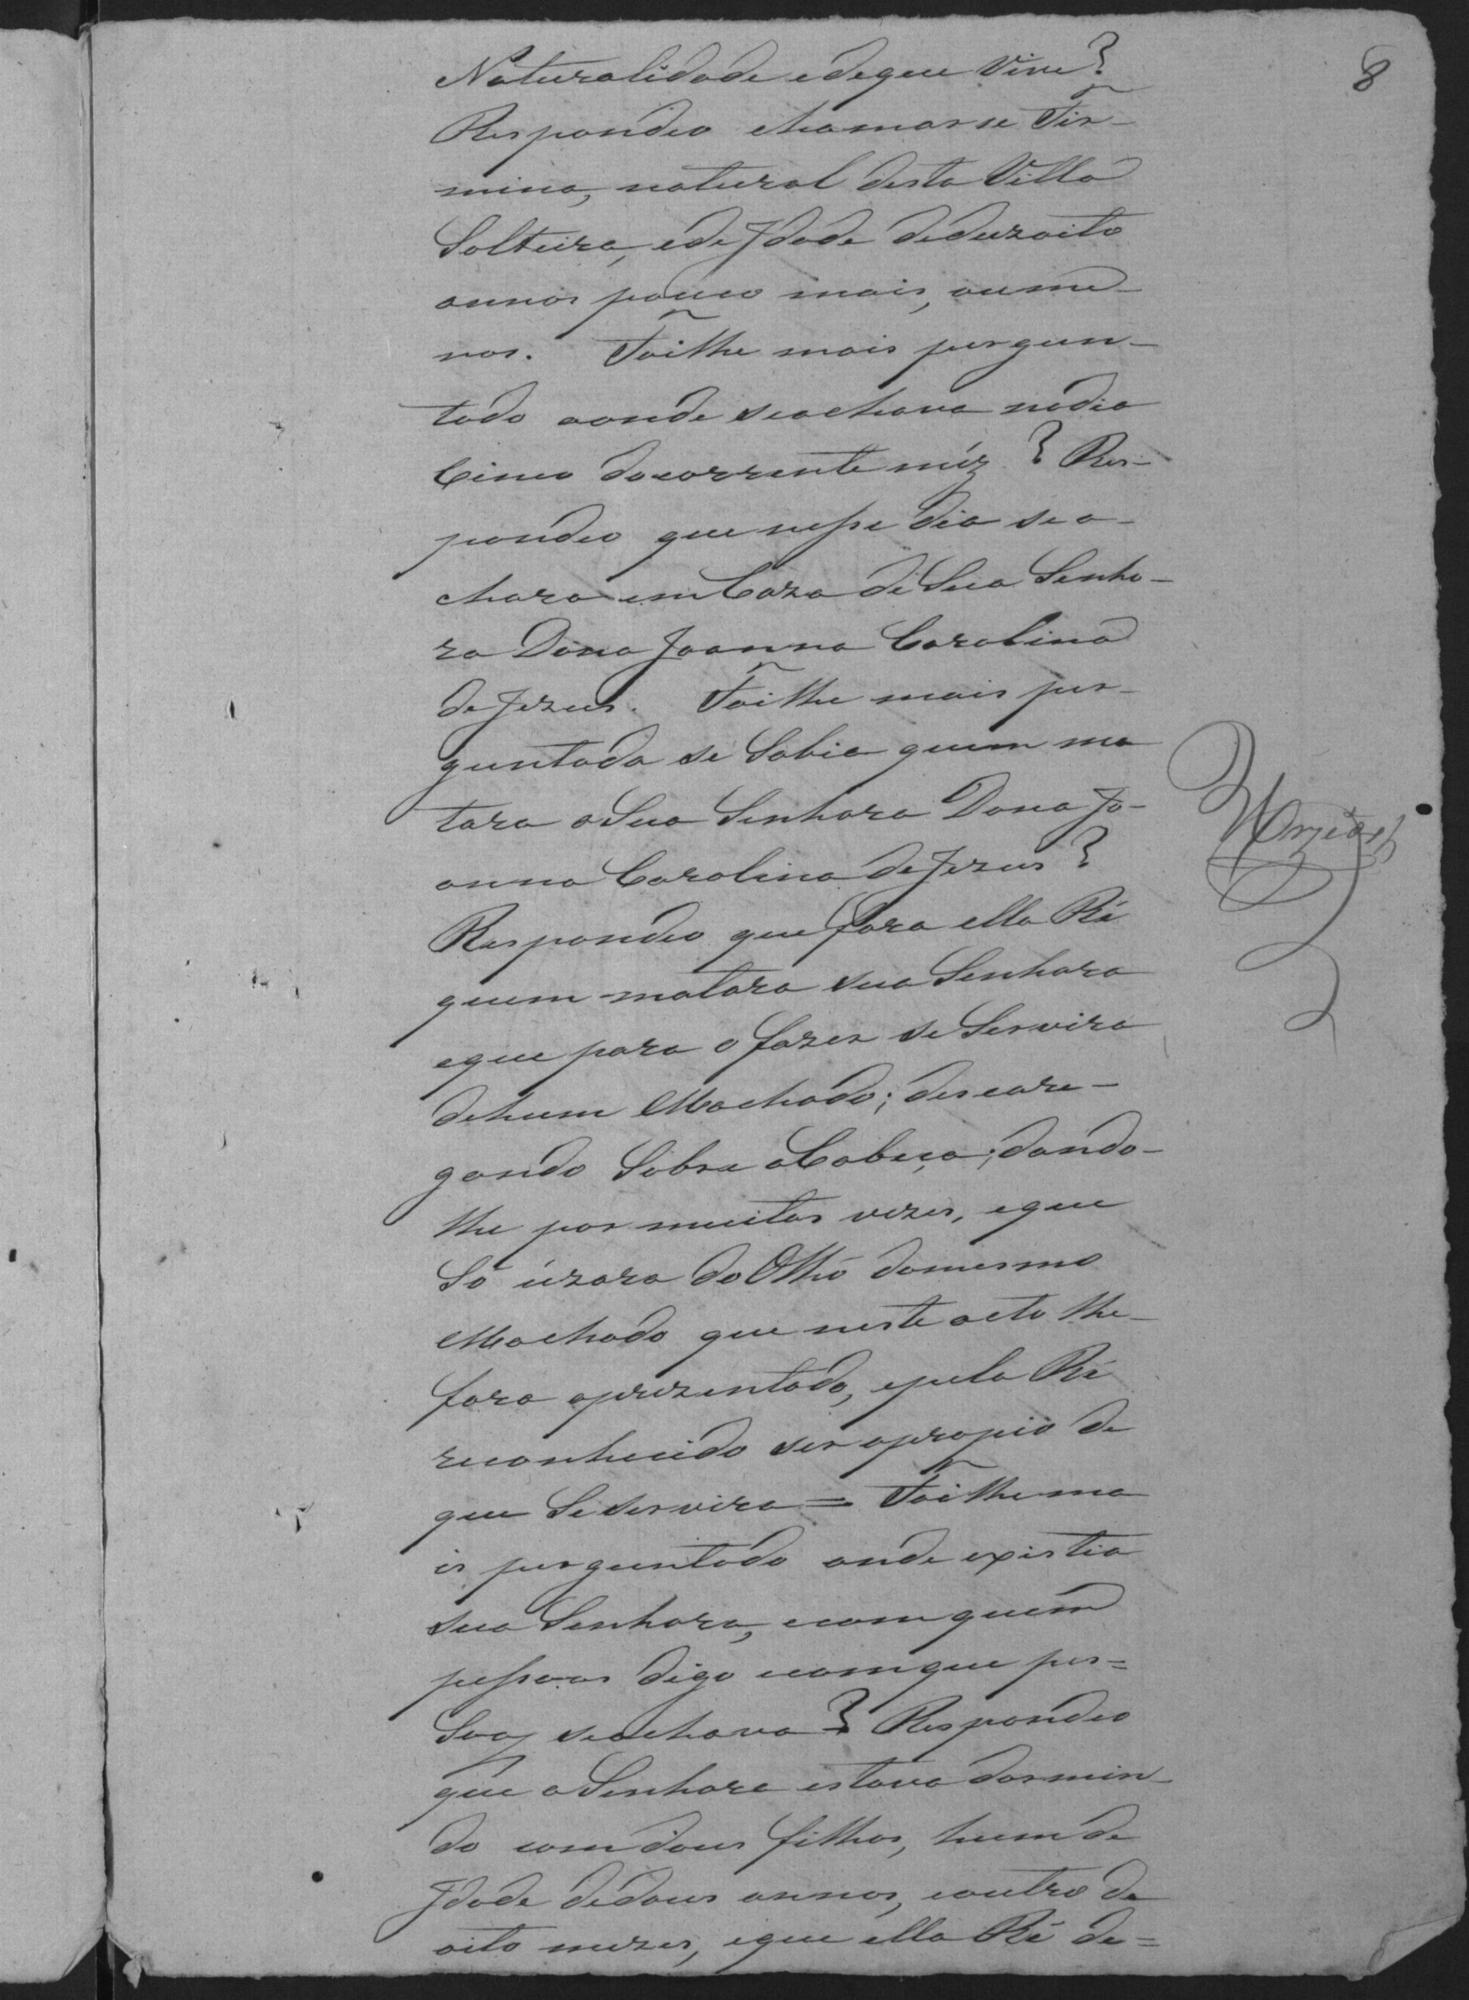 8
Naturalidade edeque Vive?
Respondeo chamarse Fir-
mina, natural desta Villa
Solteira, ede Idade dedezoito
annos pouco mais, oume-
nos. Foilhe mais pergun-
tado aonde seachava nodia
Cinco docorrente mêz? Res-
pondeo que nesse dia sea-
chara emCaza de Sua Senho-
ra Dona Joanna Carolina
de Jezus. Foilhe mais per-
guntado se Sabia quem ma
tara aSua Senhora Dona Jo-
anna Carolina de Jezus?
Respondeo que fora ella Ré
quem matara sua Senhora
eque para o fazer se Servira
dehum Machado; descare-
gando Sobre aCabeça; dando-
lhe por muitas vezes, eque
Só úzara do Olho domesmo
Machado que neste acto lhe
fora aprezentado, epela Ré
reconhecido ser oproprio de
que Seservira = Foilhema
is perguntado onde existia
sua Senhora, ecomquem
pessoas digo ecomque pes=
Soas seachava? Respondeo
que aSenhora estava dormin-
do com dous filhos, hum de
Idade dedous annos, eoutro de
oito mezes, eque ella Ré de=